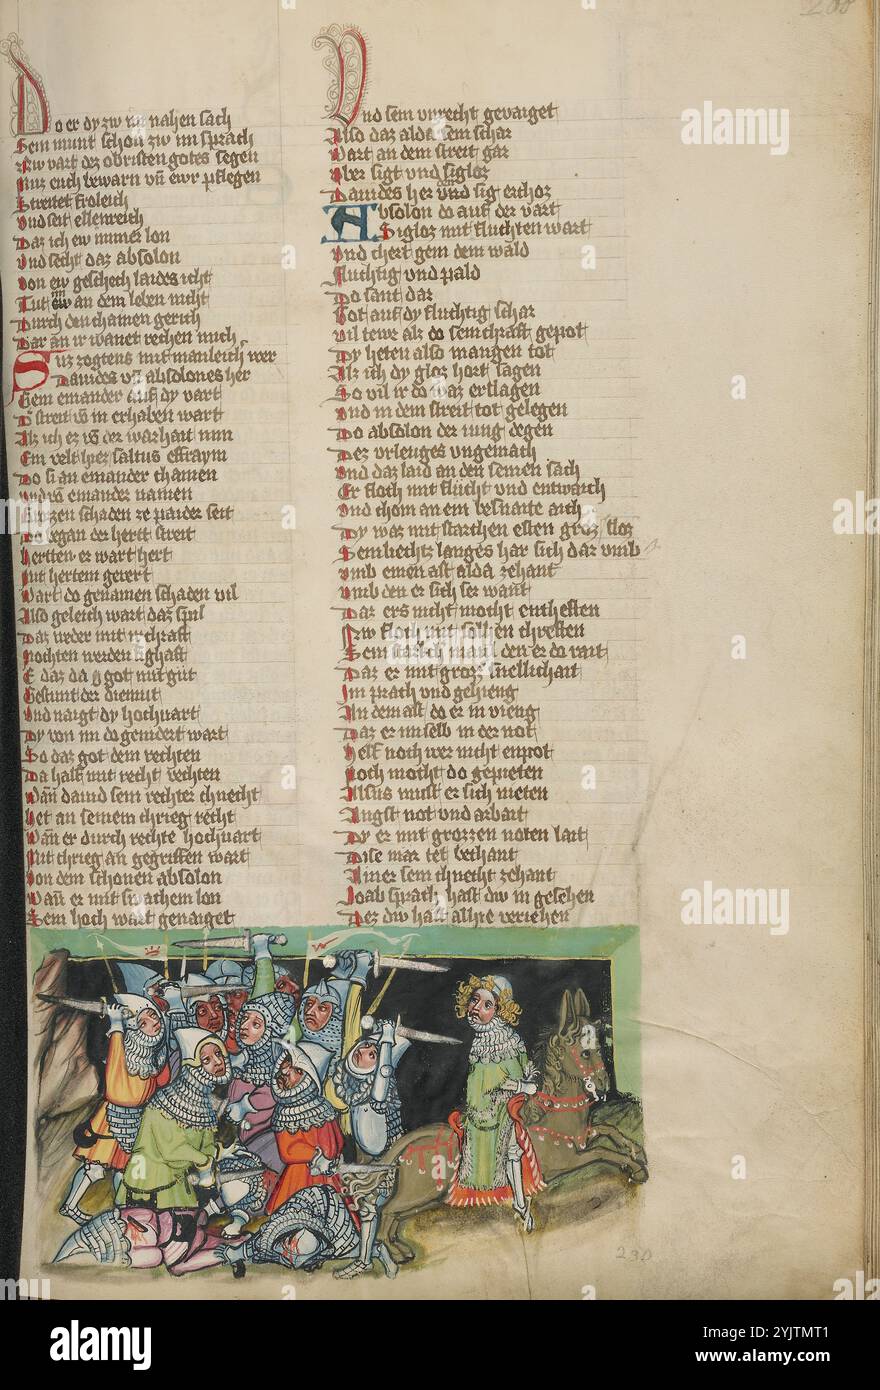 Do er dy zw im nahen sach
Sein munt schon zw im sprach
Nw vart dez obristen gotes segen
Muz euch bewarn vn̄ ewr pflegen
Streitet froleich
vnd seit ellenreich
Daz ich ew immer lon
vnd secht daz absolon
von ew geschech laides icht
Tut im an dem leben nicht
Durch den
Dar an ir wanet rechen mich
Suz zogtens mit manleich wer
Dauides vn̄ absolones her
Gein einander auf dy vart
D streit vō in erhaben wart
Alz ich ez vō der warhait nim
Ein velt hiez saltus effraym
Do si an einander chamen
vnd vō einander namen
Grozzen schaden ze paider seit
Do began der hertt streit
hertten er wart hert
Mit hertem gevert
Wart do genomen schaden vil
Also geleich wart daz spil
Daz weder mit ir chraft
Mochten werden sighaft
E daz da got mit gut
Gestunt der diemut
vnd naigt dy hochuart
Dy von im do genidert wart
So daz got dem rechten
Da half mit recht vechten
Wan̄ dauid sein rechter chnecht
Het an seinem chrieg recht
Wan̄ er durch rechte hochuart
Mit chrieg an gegriffen wart
Von dem schonen absolon
Wan̄ er mit swachem lon
Sein hoch wart genaiget
Vnd sein vnrecht gevaiget
Also daz alda sein schar
Wart an dem streit gar
Aber sigt vnd sigloz
Dauides her vnd sig erchoz
Absolon do auf der vart
Sigloz mit fluchten wart
Vnd chert gein dem wald
Fluchtig vnd pald
Do sant dar
Got auf dy fluchtig schar
vil tewr alz do sein chraft gepot
Dy heten also mangen tot
Alz ich dy gloz hort sagen
So vil ir do waz erslagen
vnd in dem streit tot gelegen
Do absolon der iung degen
Dez vrleuges vngemach
vnd daz laid an den seinen sach
Er floch mit flucht vnd entwaich
vnd chom an ein
Dy waz mit starchen esten groz
Sein liechtz langes har sich dar vmb
vmb einen ast alda zehant
vmb den er sich ser want
Dar ers nicht mocht enthesten
Nw floch mit solhen chreften
Sein starkch maul den er do rait
Daz er mit grozz snellichait
Im prach vnd gehieng
An dem ast do er in vieng
Daz er im selb in der not
Helf noch wer nicht enpot
Noch mocht do gepieten
Alsus must er sich nieten
Angst not vnd arbait
Dy er mit grozzen noten lait
Dise mar tet bechant
Ainer sein chnecht zehant
Joab sprach hast dw in gesehen
Dez dw hast allhie veriehen
230
alamy
Image ID: 2YJTMT1
www.alamy.com